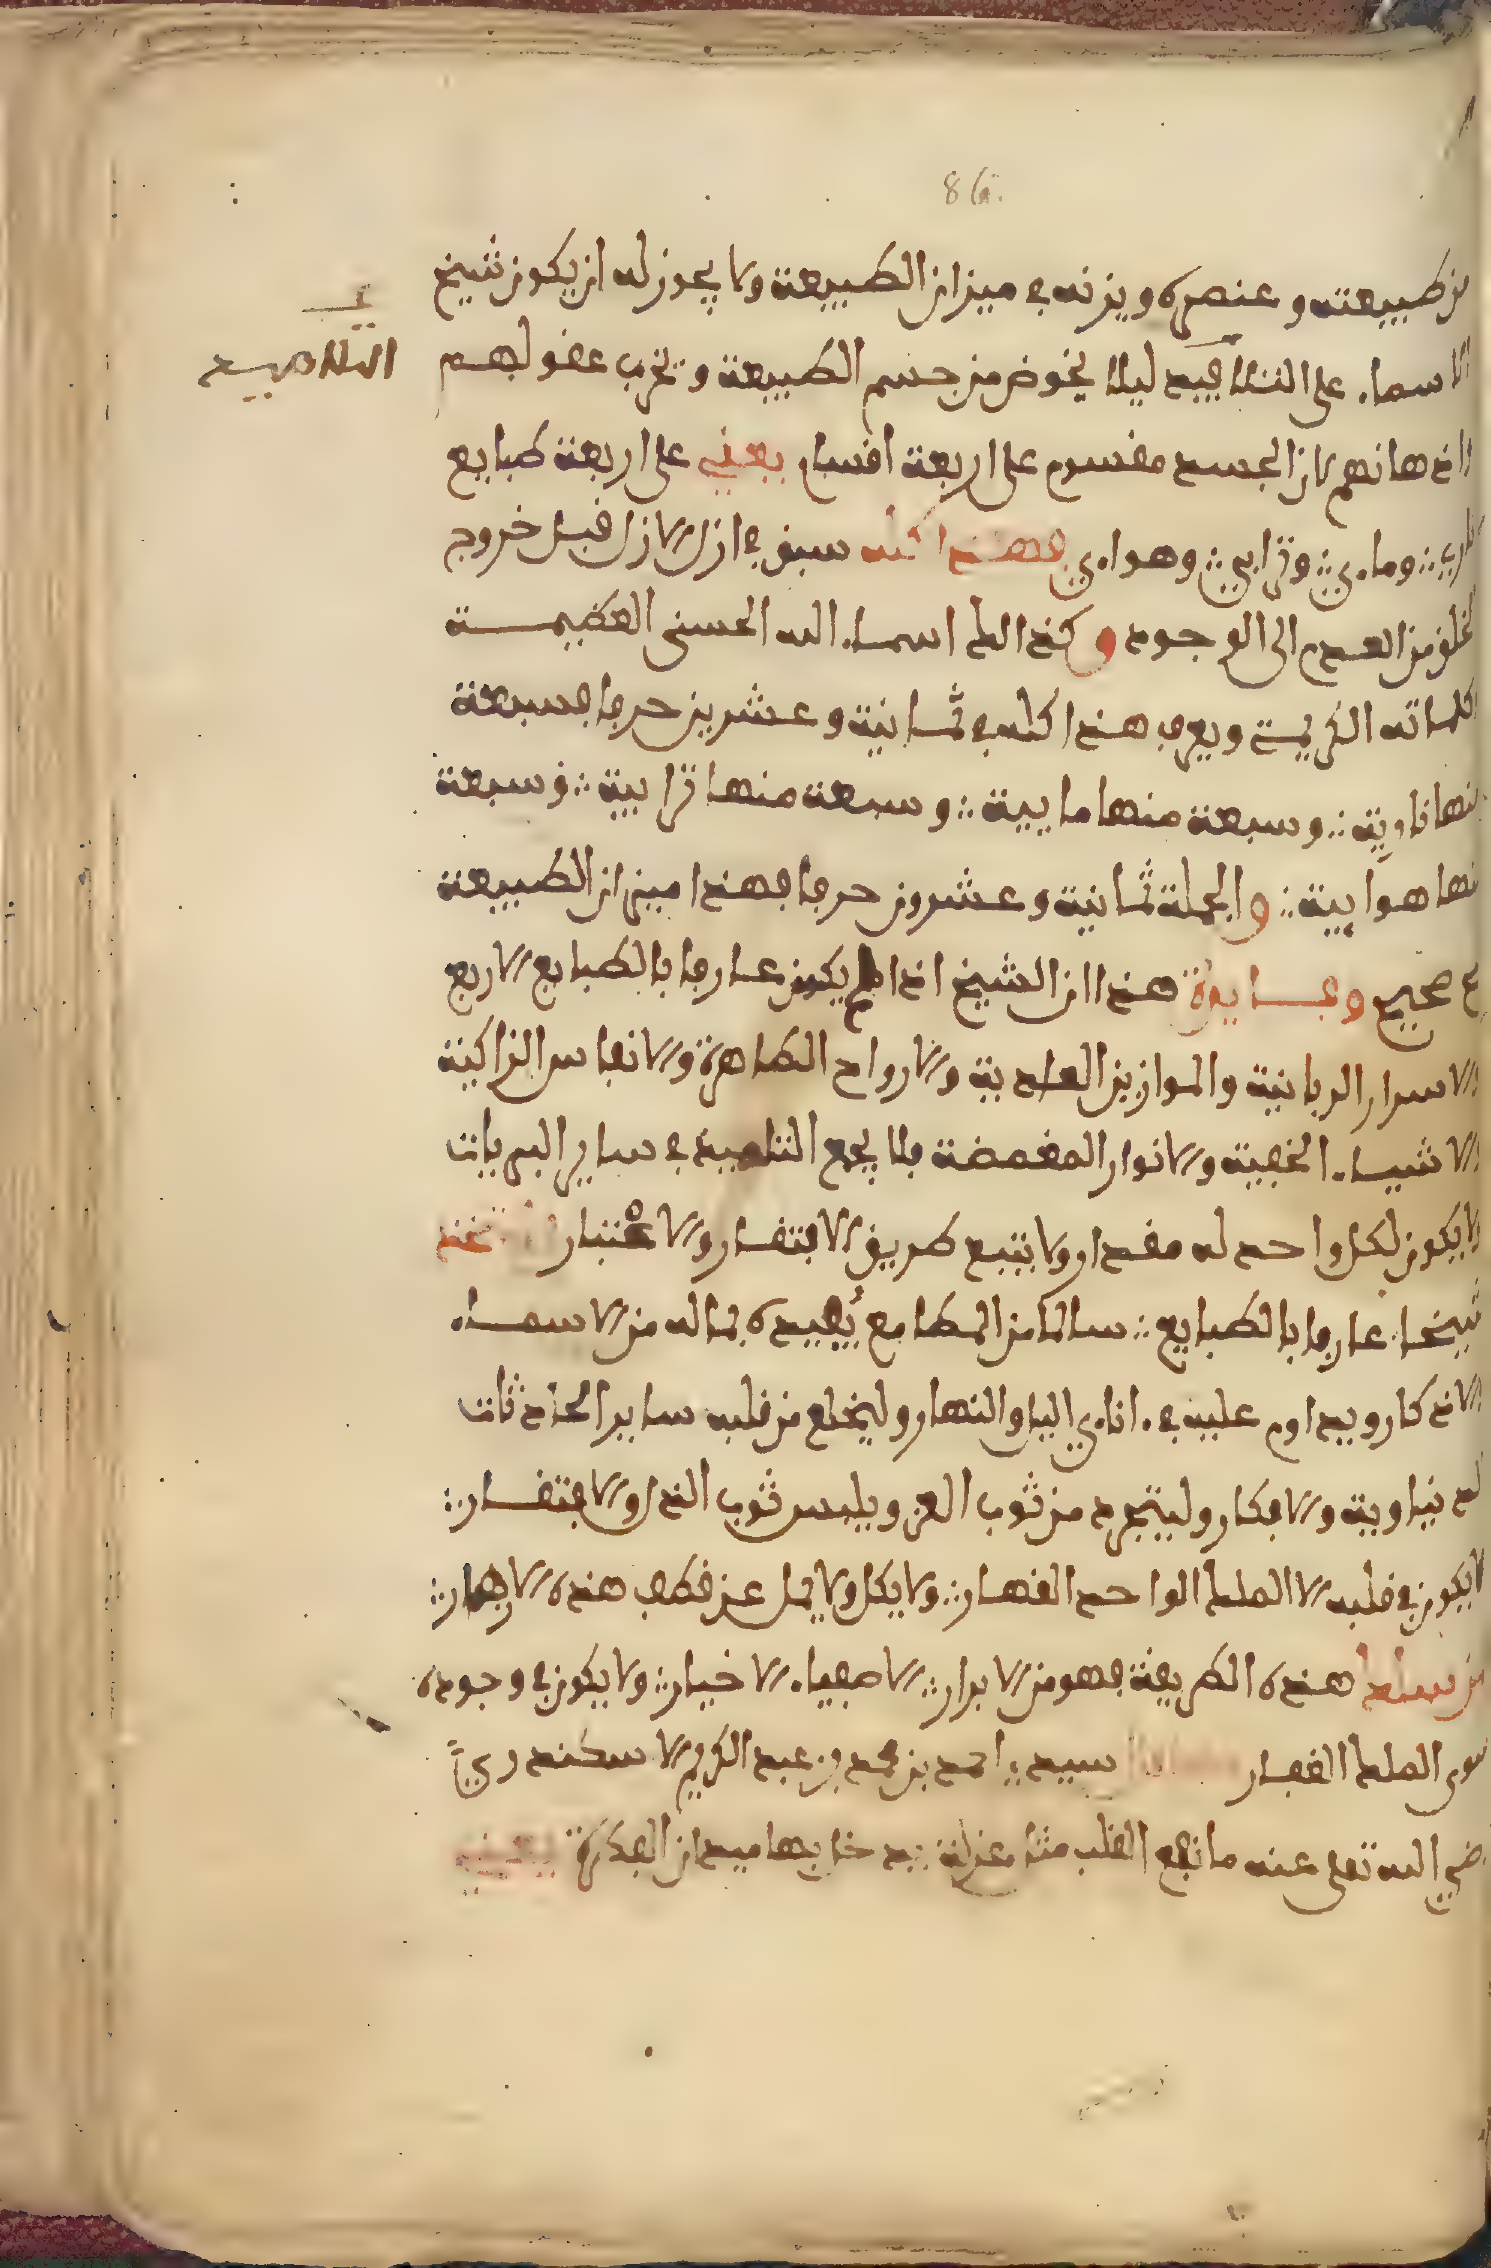 86.
من طبيعته وعنصره ويزنه في ميزان الطبيعة ولا يجوز له ان يكون شيخ
الاسماء على التلاميد ليلا يخوض من جسم الطبيعة وتخرب عقولهم
في
التلاميد
واذهانهم لان الجسد مقسوم على اربعة اقسام يعني على اربعة طبايع
وماءي وترابي وهواءي فهذا كله سبق في ازل الازل قبل خروج
الخلق من العدم الى الوجود وكذالك اسماء الله الحسنى العظيمة
كلماته الكريمة ويعرف هذا كله في ثمانية وعشرين حرفا فسبعة
منها نارية وسبعة منها مايية وسبعة منها ترابية وسبعة
منها هوايية والجملة ثمانية وعشرون حرفا فهذا ميزان الطبيعة
صحيح وفايدة هذا ان الشيخ اذا لم يكن عارفا بالطبايع الاربع
والاسرار الربانية والموازين العددية والارواح الطاهرة والانفاس الزاكية
والاشياء الخفية والانوار المغمضة فلا يجمع التلاميذ في ساير البريات
لا يكون لكل واحد له مقدار ولا يتبع طريق الافتقار والاعتبار
شيخا عارفا بالطبايع سالما من المطامع يفيده بماله من الاسماء
الاذكار ويداوم عليه في اناءي اليل والنهار وليخلع من قلبه ساير الحادثات
الدنياوية والافكار وليتجرد من ثوب العز ويلبس ثوب الذل والافتقار
لا يكون في قلبه الا الملك الواحد القهار ولا يكل ولا يمل عن قطف هذه الازهار
من سلك هذه الطريقة فهو من الابرار الاصفياء الاخيار ولا يكون في وجوده
سوى الملك الغفار سيدي احمد بن محمد بن عبد الكريم الاسكندري
رضي الله تعلى عنه ما نفع القلب مثل عزلة يدخل بها ميدان الفكرة يعني